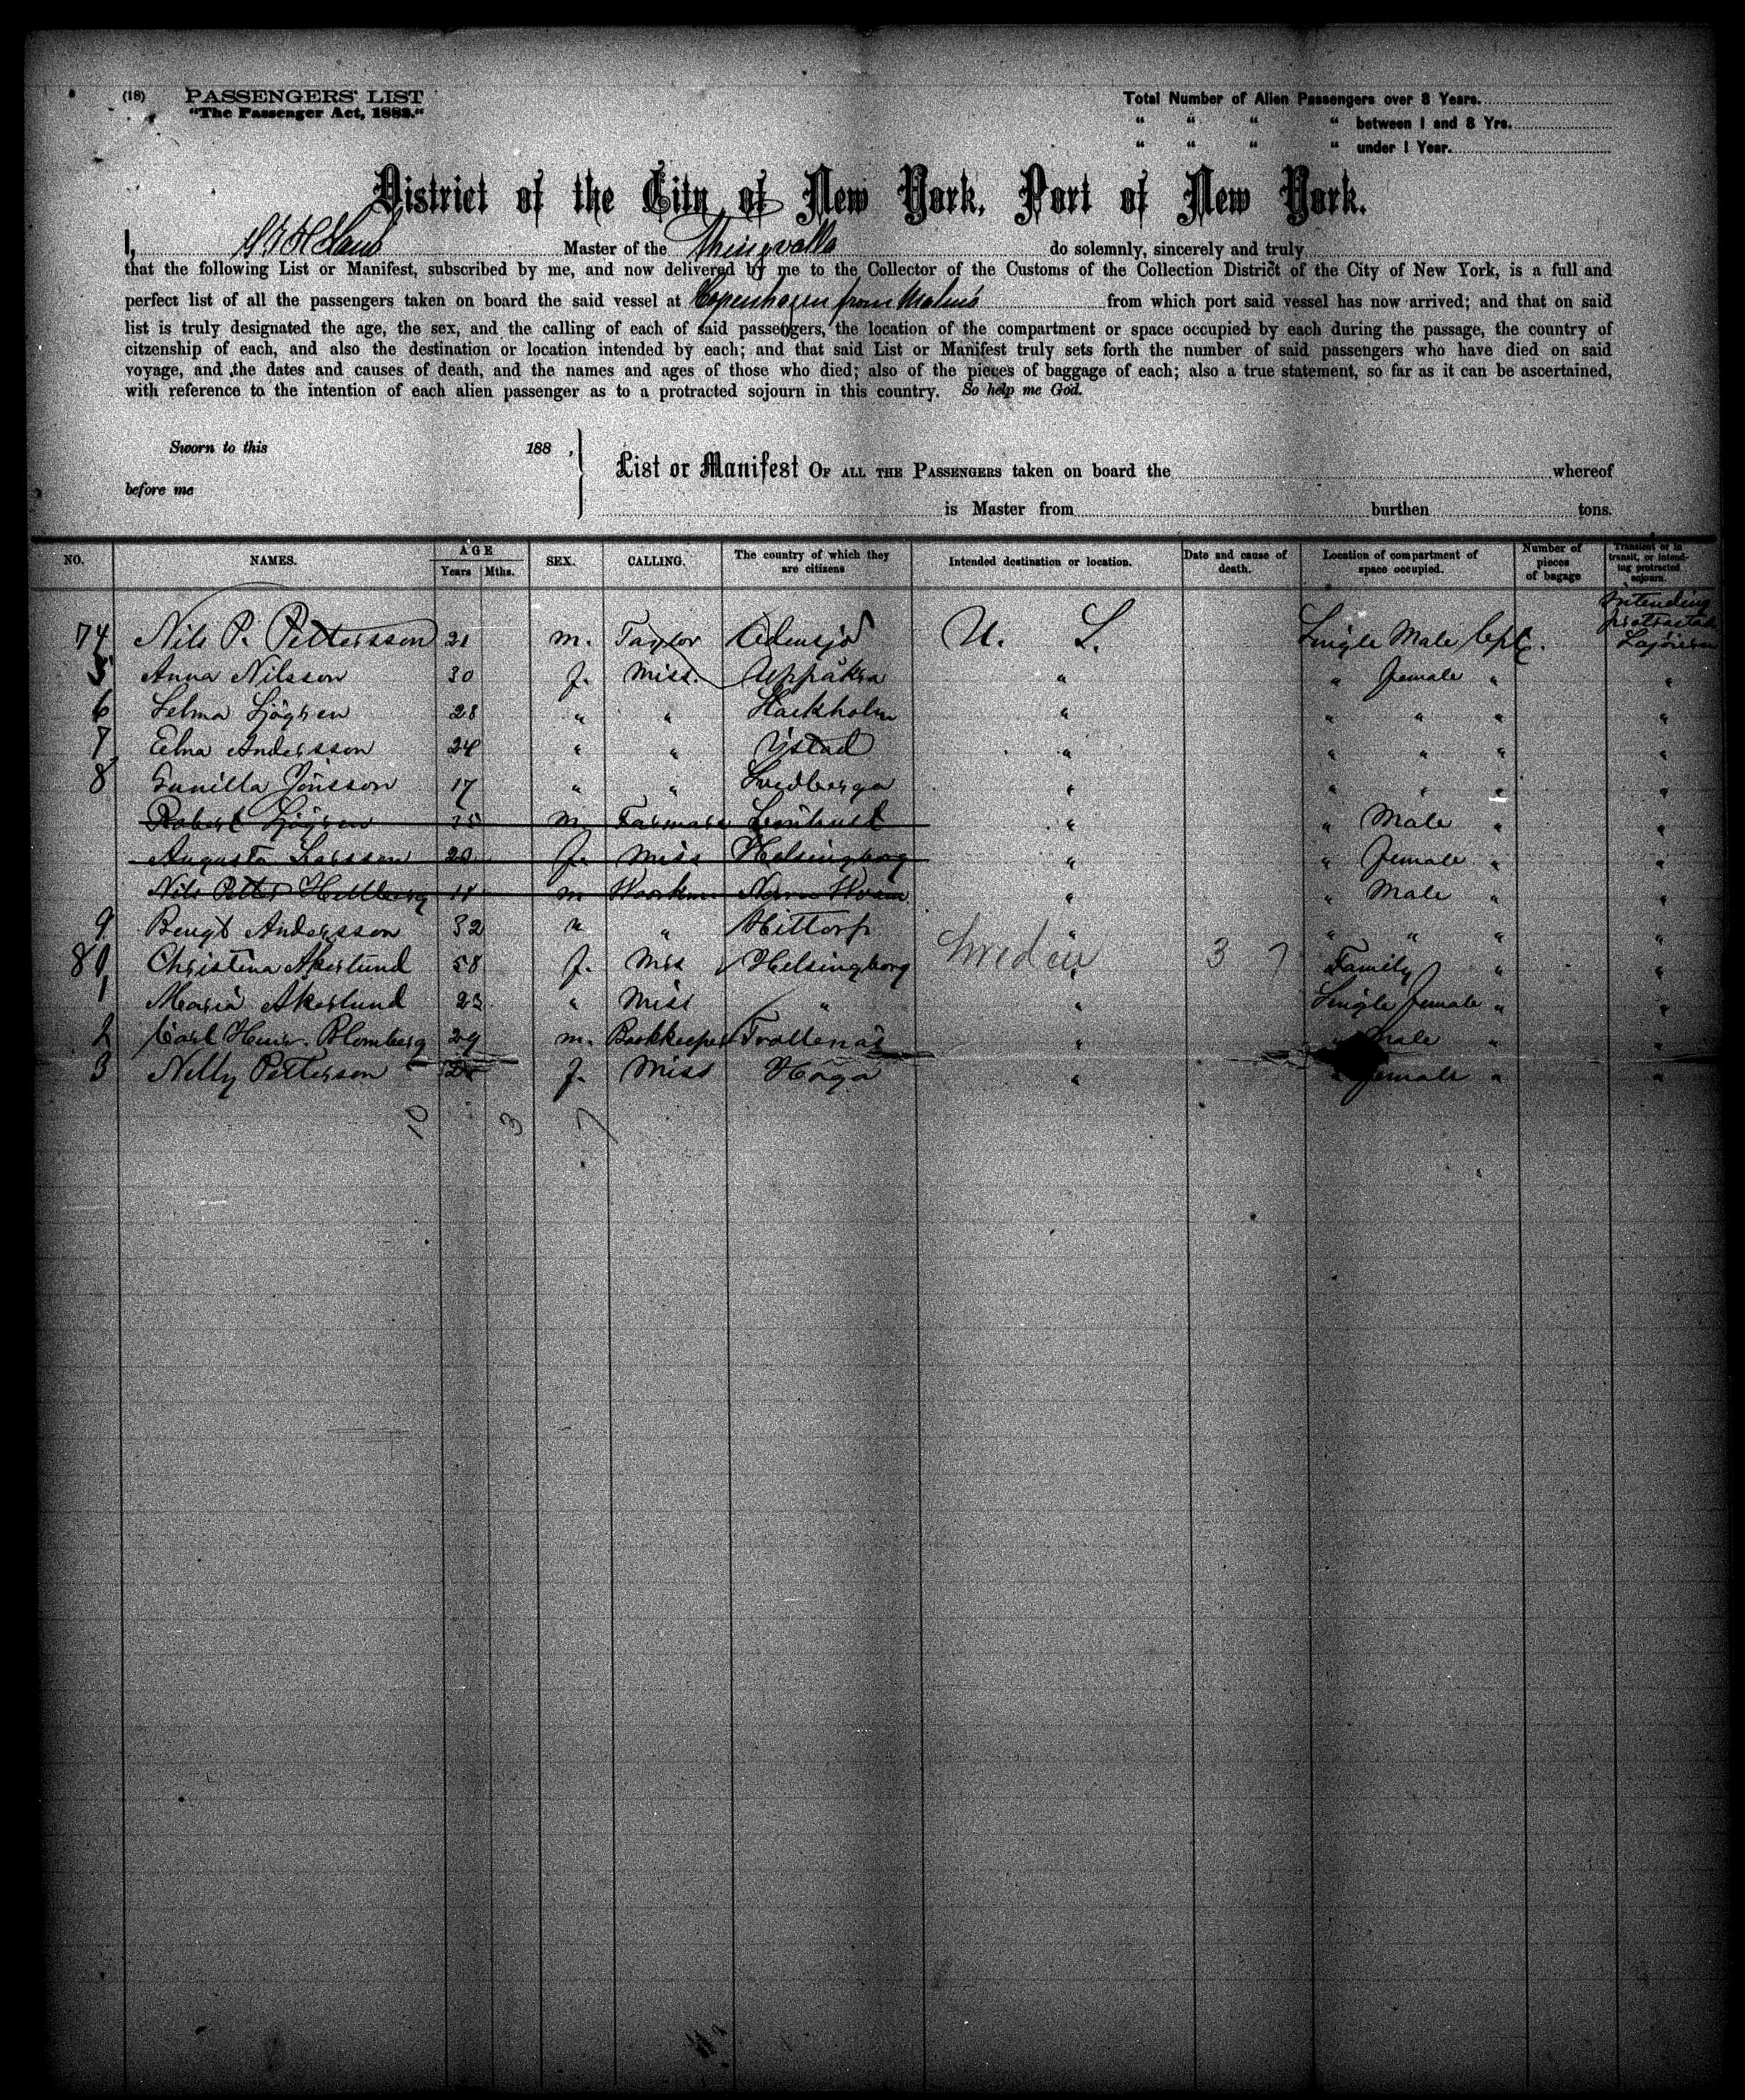 (18) PASSENGERS' LIST
"The Passenger Act, 1882."
Total Number of Alien Passengers over 8 Years
" " " " between 1 and 8 Yrs.
" " " " under 1 Year.
District of the City of New York, Port of New York.
I, Laub Master of the Thingvalla do solemnly, sincerely and truly
that the following List or Manifest, subscribed by me, and now delivered by me to the Collector of the Customs of the Collection District of the City of New York, is a full and
perfect list of all the passengers taken on board the said vessel at Copenhagen from Malmö from which port said vessel has now arrived; and that on said
list is truly designated the age, the sex, and the calling of each of said passengers, the location of the compartment or space occupied by each during the passage, the country of
citzenship of each, and also the destination or location intended by each; and that said List or Manifest truly sets forth the number of said passengers who have died on said
voyage, and the dates and causes of death, and the names and ages of those who died; also of the pieces of baggage of each; also a true statement, so far as it can be ascertained,
with reference to the intention of each alien passenger as to a protracted sojourn in this country. So help me God.
Sworn to this 188 ,
before me
List or Manifest OF ALL THE PASSENGERS taken on board the whereof
is Master from burthen tons.
NO. NAMES. AGE Years Mths. SEX. CALLING. The country of which they are citizens Intended destination or location. Date and cause of death. Location of compartment of space occupied. Number of pieces of bagage Transient or in transit, or intending protracted sojourn.
74 Nils P. Pettersson 21 m. Taylor Odensjö U. S. Single Male Cpt. Intending protracted Sojourn
5 Anna Nilsson 30 f. Miss. Uppåkra " " Female " "
6 Selma Sjögren 28 " " Stockholm " " " " "
7 Elna Andersson 24 " " Ystad " " " " "
8 Gunilla Jönsson 17 " " Svedberga " " " " "
Robert Sjögren 35 m. Farmare Lönhult " " Male " "
Augusta Larsson 20 f. Miss Helsingborg " " Female " "
Nils Petter Hellberg m Workm Norra " " Male " "
9 Bengt Andersson 32 " " Hittorp " " " " "
80 Christina Åkerlund 58 f. Mrs Helsingborg Sweden " 3 7 Family " "
1 Maria Åkerlund 23 " Miss " " Single Female " "
2 Carl Henr. Blomberg 29 m. Bookkeeper Trollenäs " " Male " "
3 Nelly Petterson f. Miss Höga " " Female " "
10 3 7